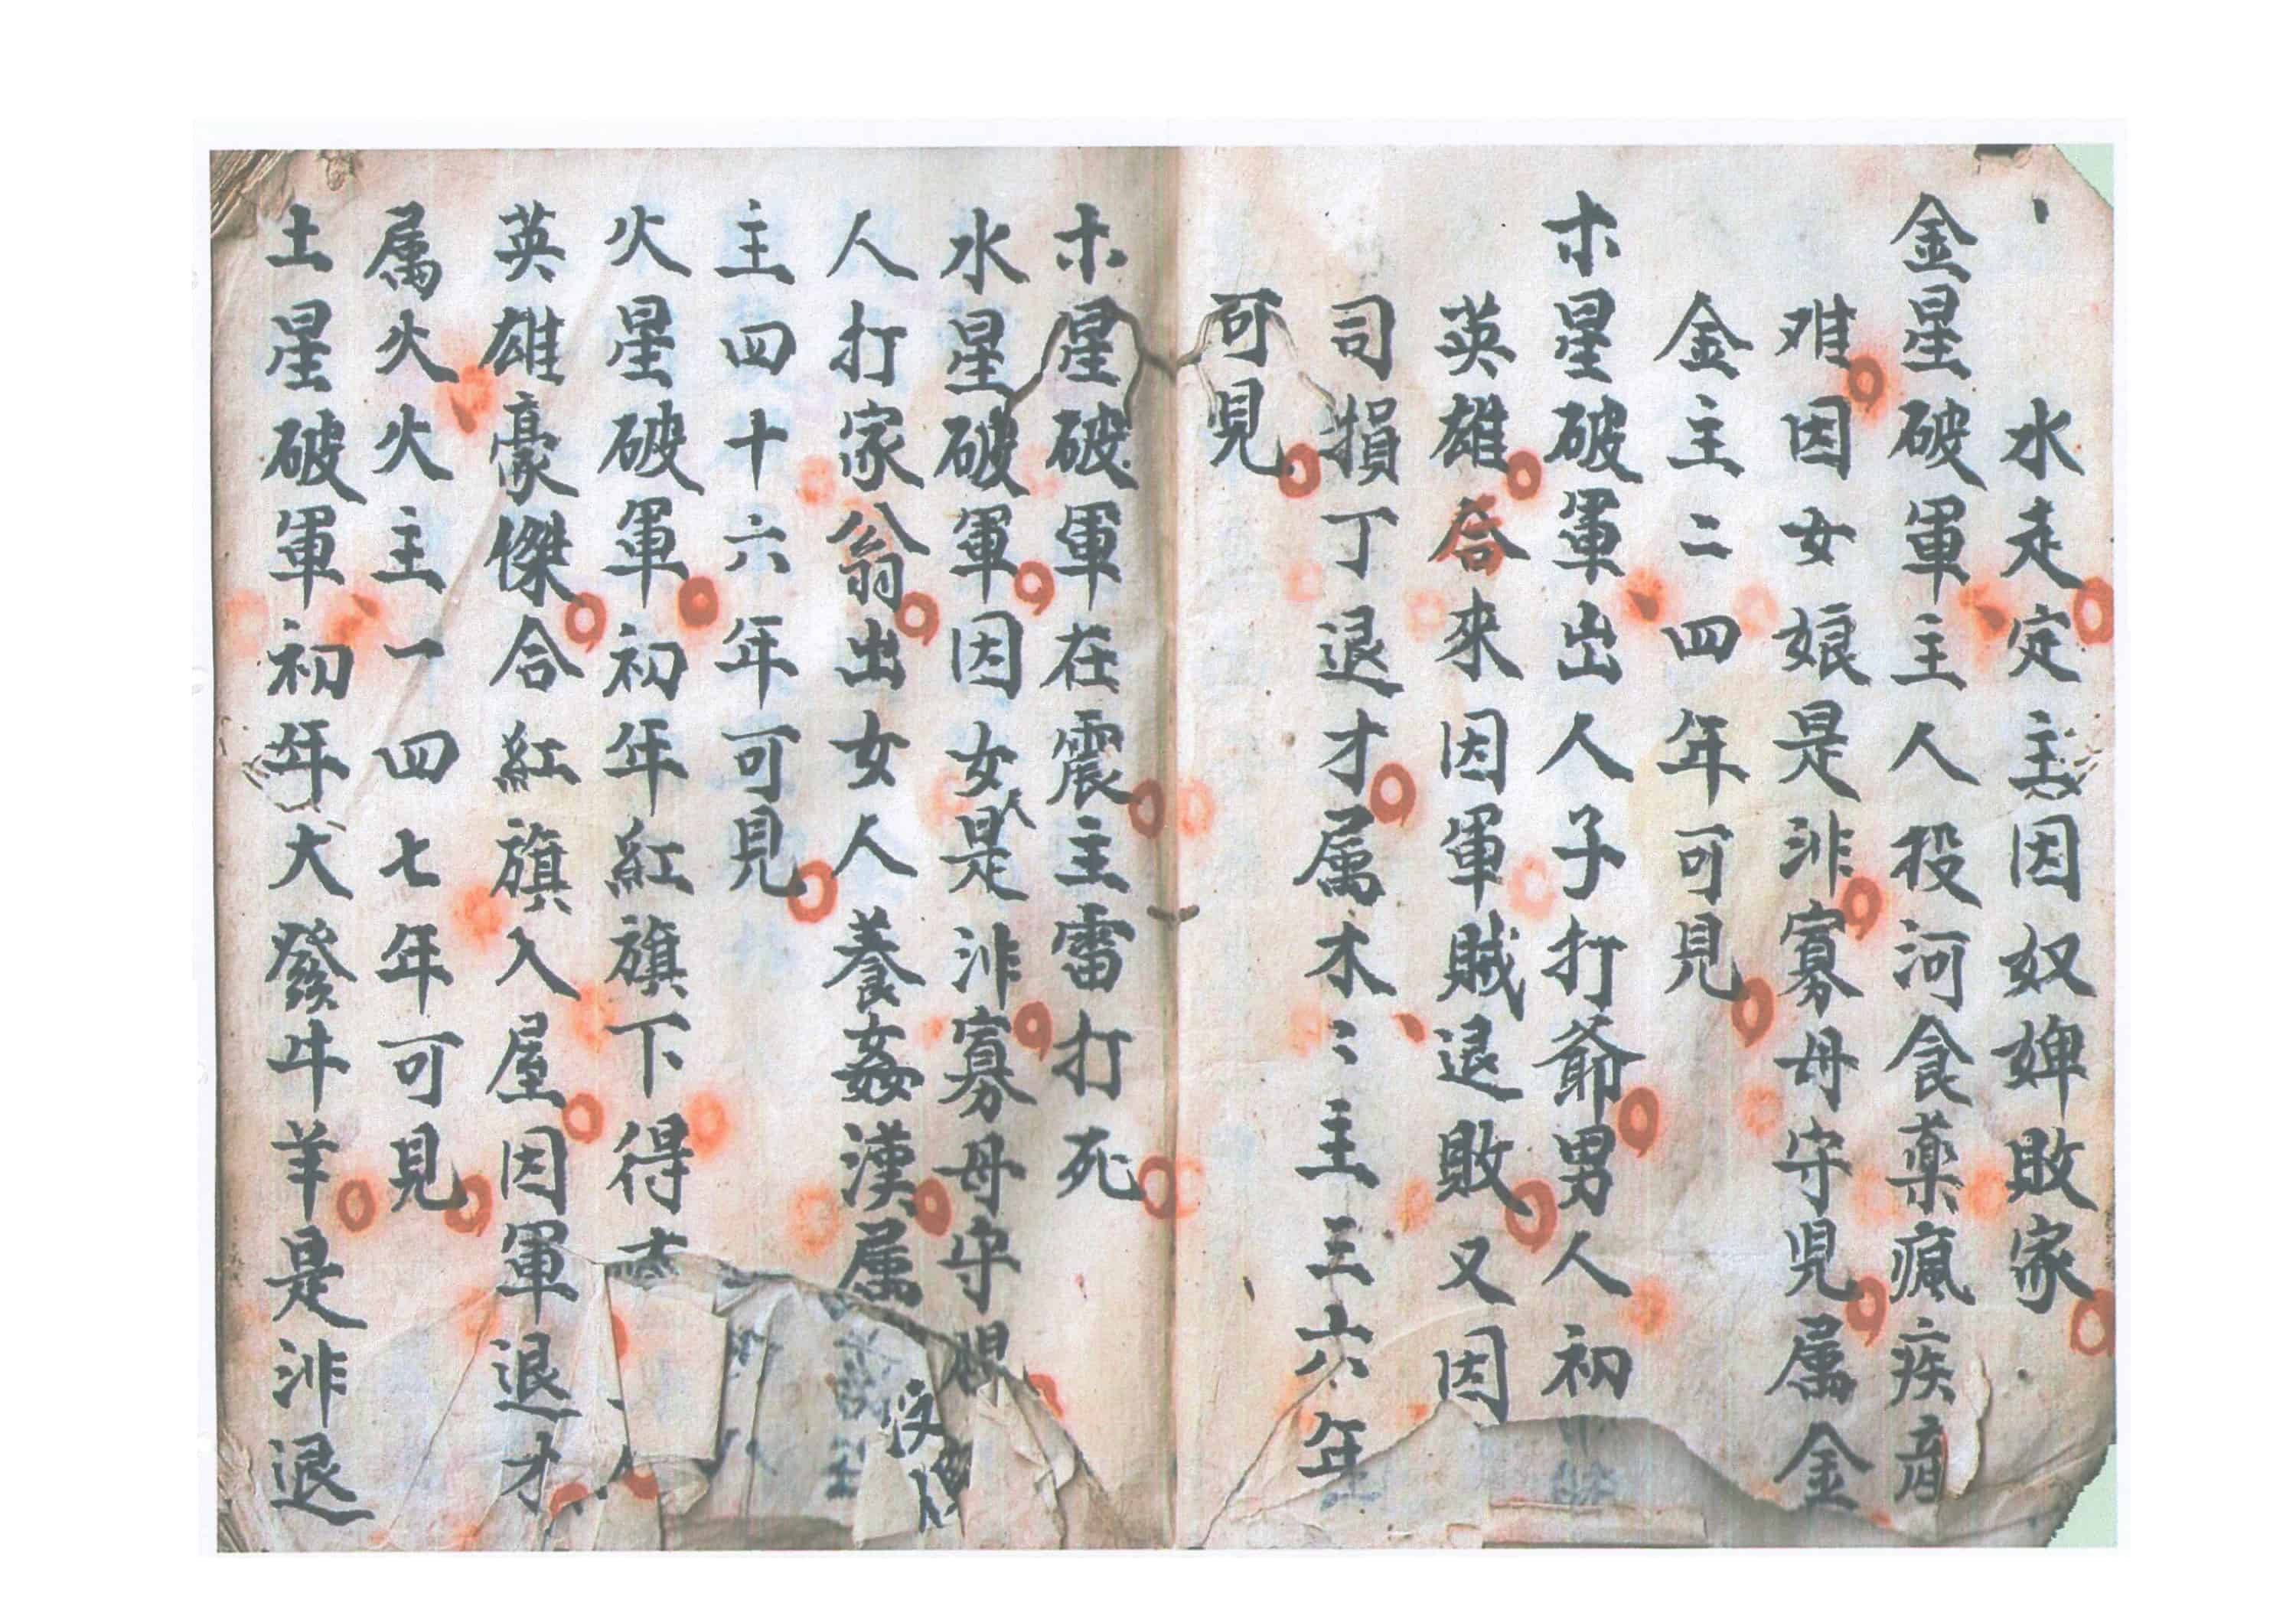 水走定主因奴婢敗家
金星破軍主人投河食藥瘋疾
难因女娘是非寡母守児属金
金主二四年可見
木星破軍出人子打爺男人初
英雄合來因軍賊退敗又因
司損丁退才属木〻主三六年
可見
木星破軍在震主雷打死
水星破軍因女人是非寡母守
人打家翁出女人養姦漢属
主四十六年可見
火星破軍初年紅旗下得
英雄豪傑合紅旗入屋因軍退才
属火火主一四七年可見
土星破軍初年大發牛羊是非退